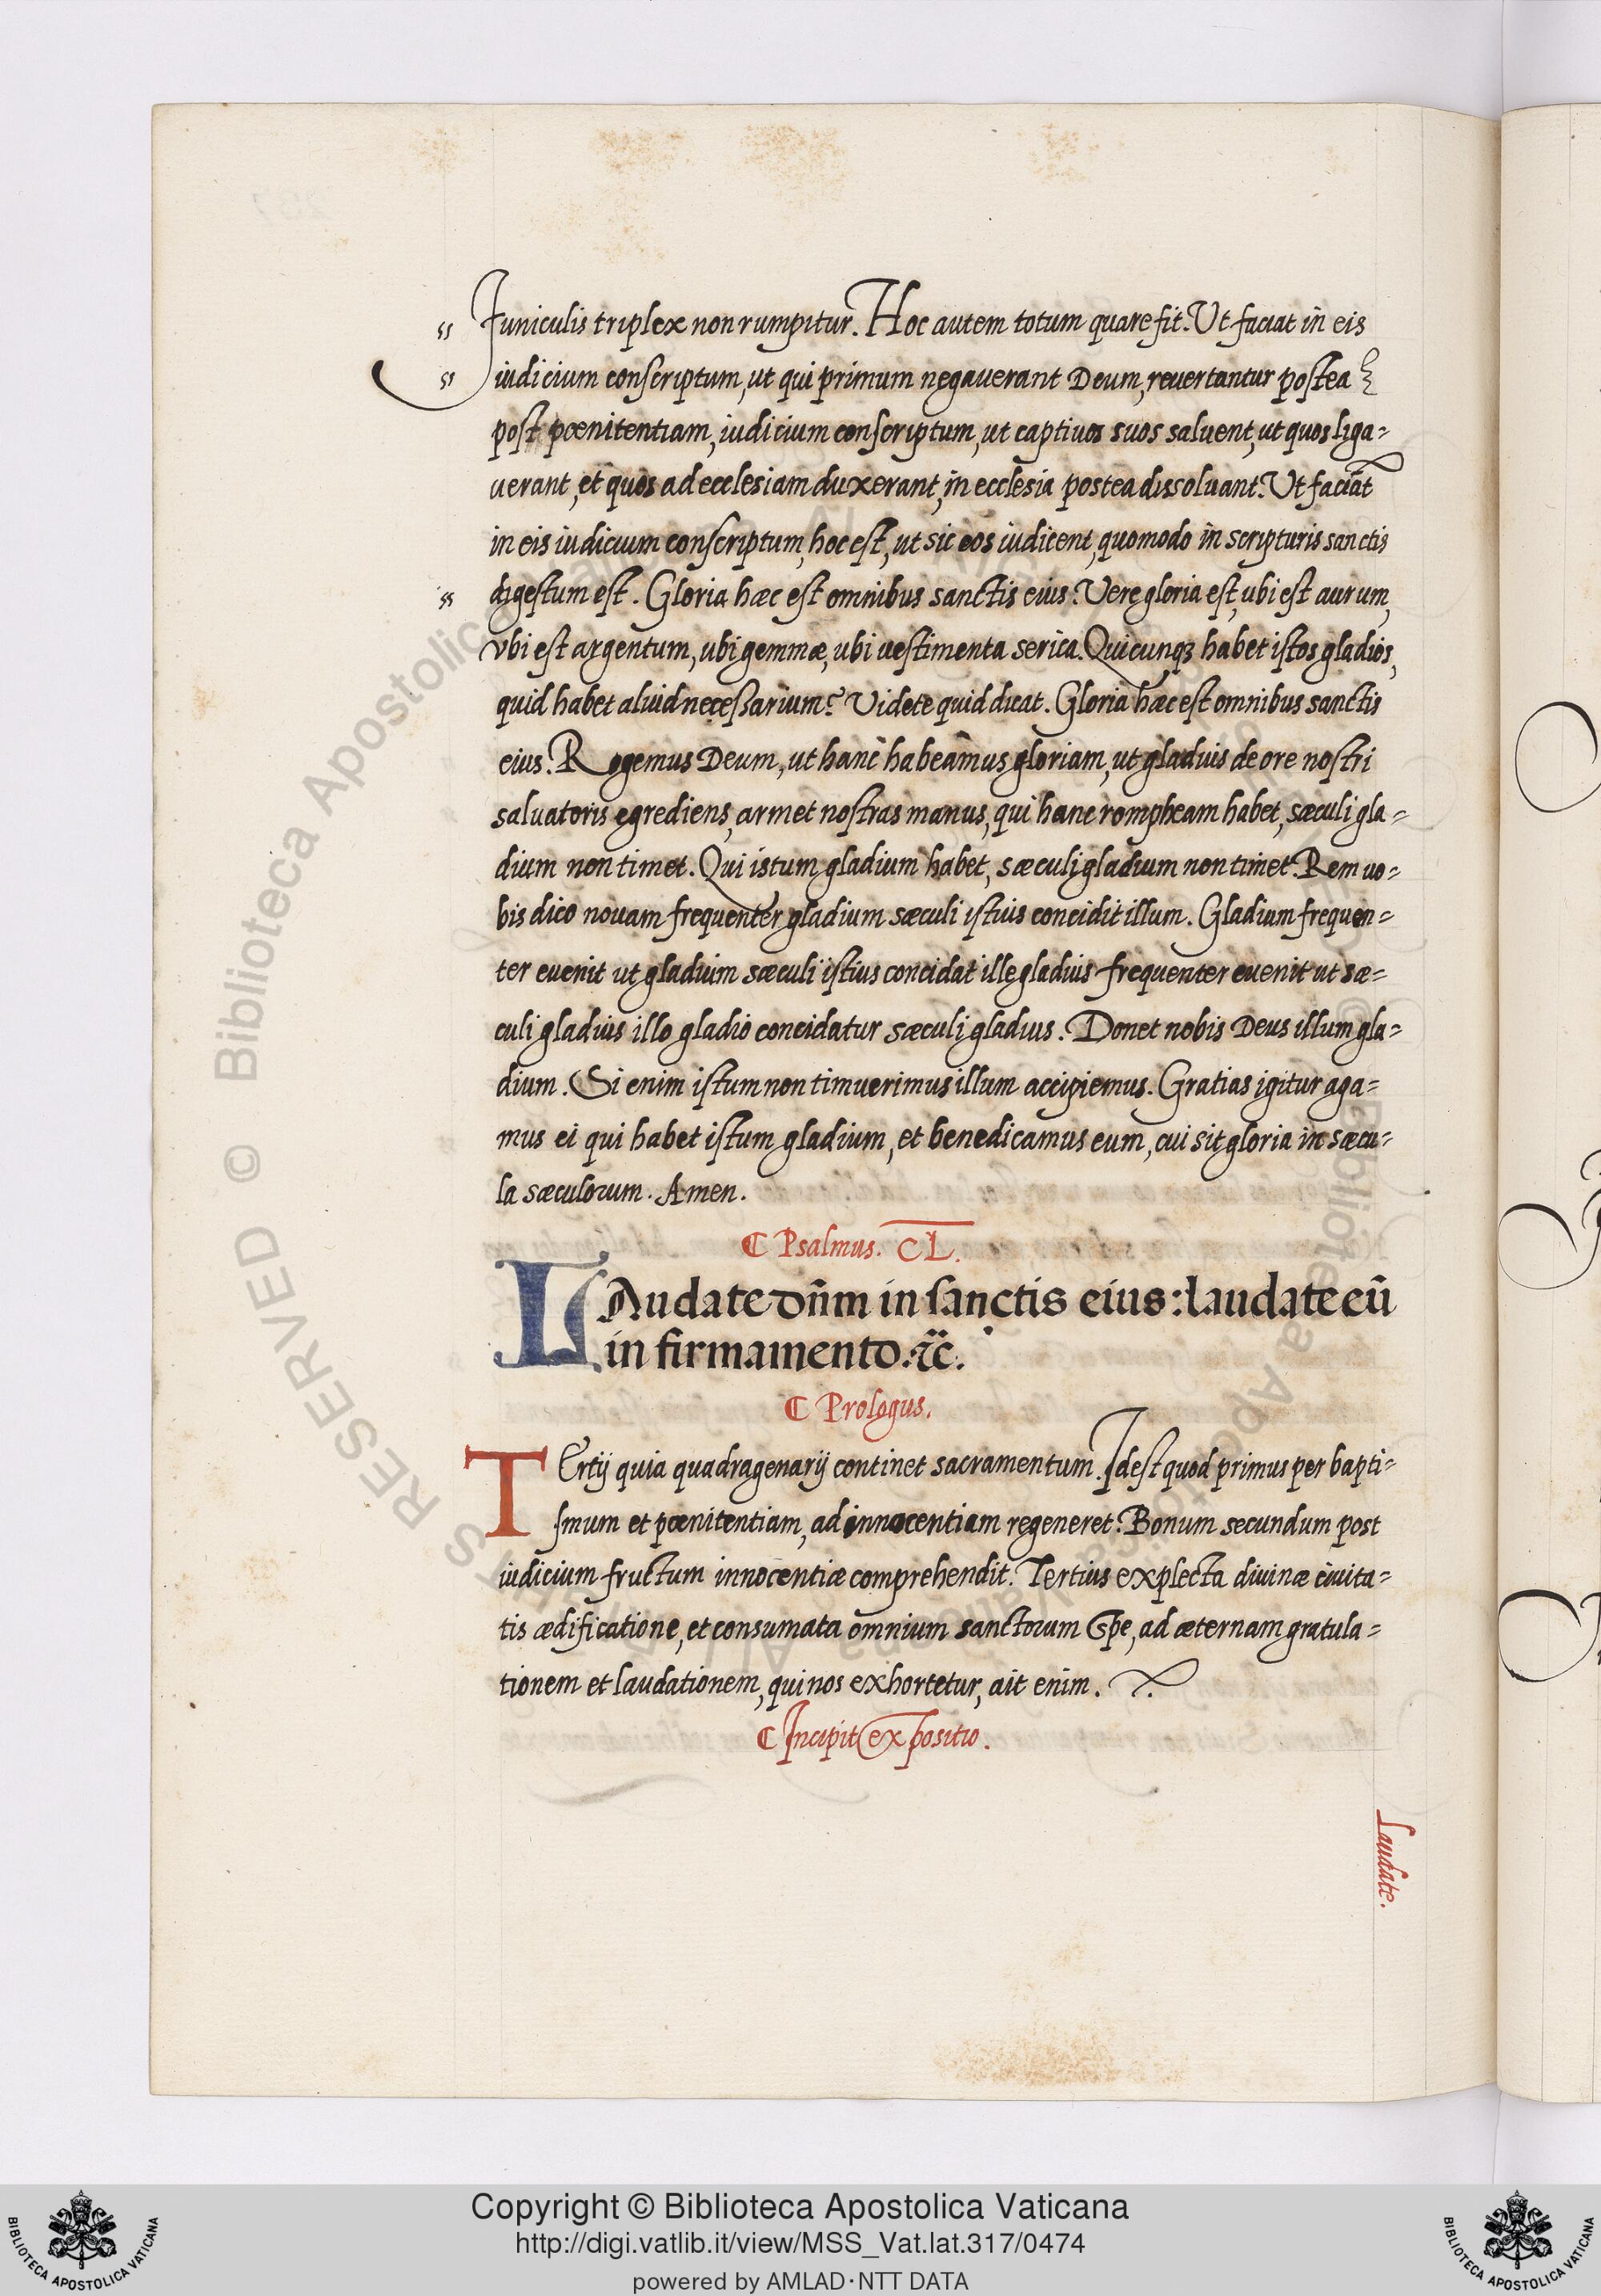 funiculis triplex non rumpitur. Hoc autem totum quare fit. Ut faciat in eis
iudicium conscriptum, ut qui primum negauerant Deum, reuertantur postea
post pœnitentiam, iudicium conscriptum, ut captiuos suos saluent, ut quos liga=
uerant, et quos ad ecclesiam duxerant, in ecclesia postea dissoluant. Ut faciat
in eis iudicium conscriptum, hoc est, ut sic eos iudicent, quomodo in scripturis sanctis
digestum est. Gloria hæc est omnibus sanctis eius. Vere gloria est, ubi est aurum,
vbi est argentum, ubi gemmæ, ubi uestimenta serica. Quicunqȝ habet istos gladios,
quid habet aliud necessarium? Videte quid dicat. Gloria hæc est omnibus sanctis
eius. Rogemus Deum, ut hanc habeamus gloriam, ut gladius de ore nostri
saluatoris egrediens, armet nostras manus, qui hanc rompheam habet, sæculi gla=
dium non timet. Qui istum gladium habet, sæculi gladium non timet. Rem uo=
bis dico nouam frequenter gladium sæculi istius concidit illum. Gladium frequen=
ter euenit ut gladium sæculi istius concidat ille gladius frequenter euenit ut sæ=
culi gladius illo gladio concidatur sæculi gladius. Donet nobis Deus illum gla=
dium. Si enim istum non timuerimus illum accipiemus. Gratias igitur aga=
mus ei qui habet istum gladium, et benedicamus eum, cui sit gloria in sæcu=
la sæculorum. Amen.
¶ Psalmus. CL.
LAudate dñm in sanctis eius: laudate eũ
in firmamento. &c.
¶ Prologus.
TErtij quia quadragenarij continet sacramentum. Idest quod primus per bapti=
smum et pœnitentiam, ad innocentiam regeneret. Bonum secundum post
iudicium fructum innocentiæ comprehendit. Tertius explecta diuinæ ciuita=
tis ædificatione, et consumata omnium sanctorum spe, ad æternam gratula=
tionem et laudationem, qui nos exhortetur, ait enim.
¶ Incipit expositio.
Laudate.
Copyright © Biblioteca Apostolica Vaticana
http://digi.vatlib.it/view/MSS_Vat.lat.317/0474
powered by AMLAD·NTT DATA